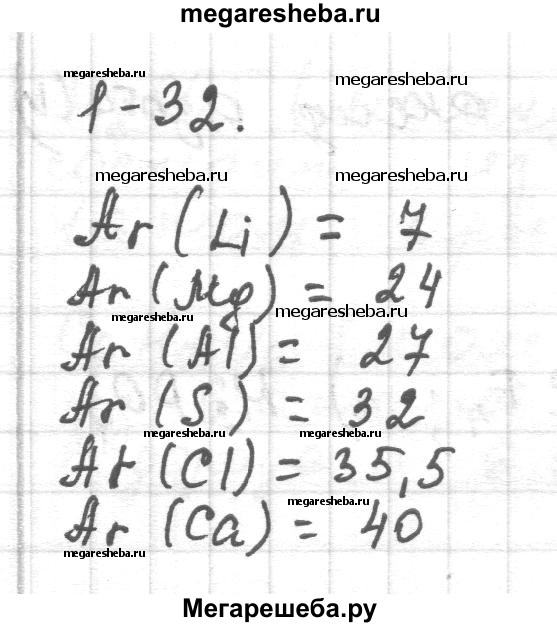 megaresheba.ru
megaresheba.ru megaresheba.ru
1-32.
megaresheba.ru megaresheba.ru
Ar (Li) = 7
Ar (Mg) = 24
megaresheba.ru megaresheba.ru
Ar (Al) = 27
Ar (S) = 32
megaresheba.ru megaresheba.ru
Ar (Cl) = 35,5
megaresheba.ru
Ar (Ca) = 40
megaresheba.ru megaresheba.ru
Мегарешеба.ру